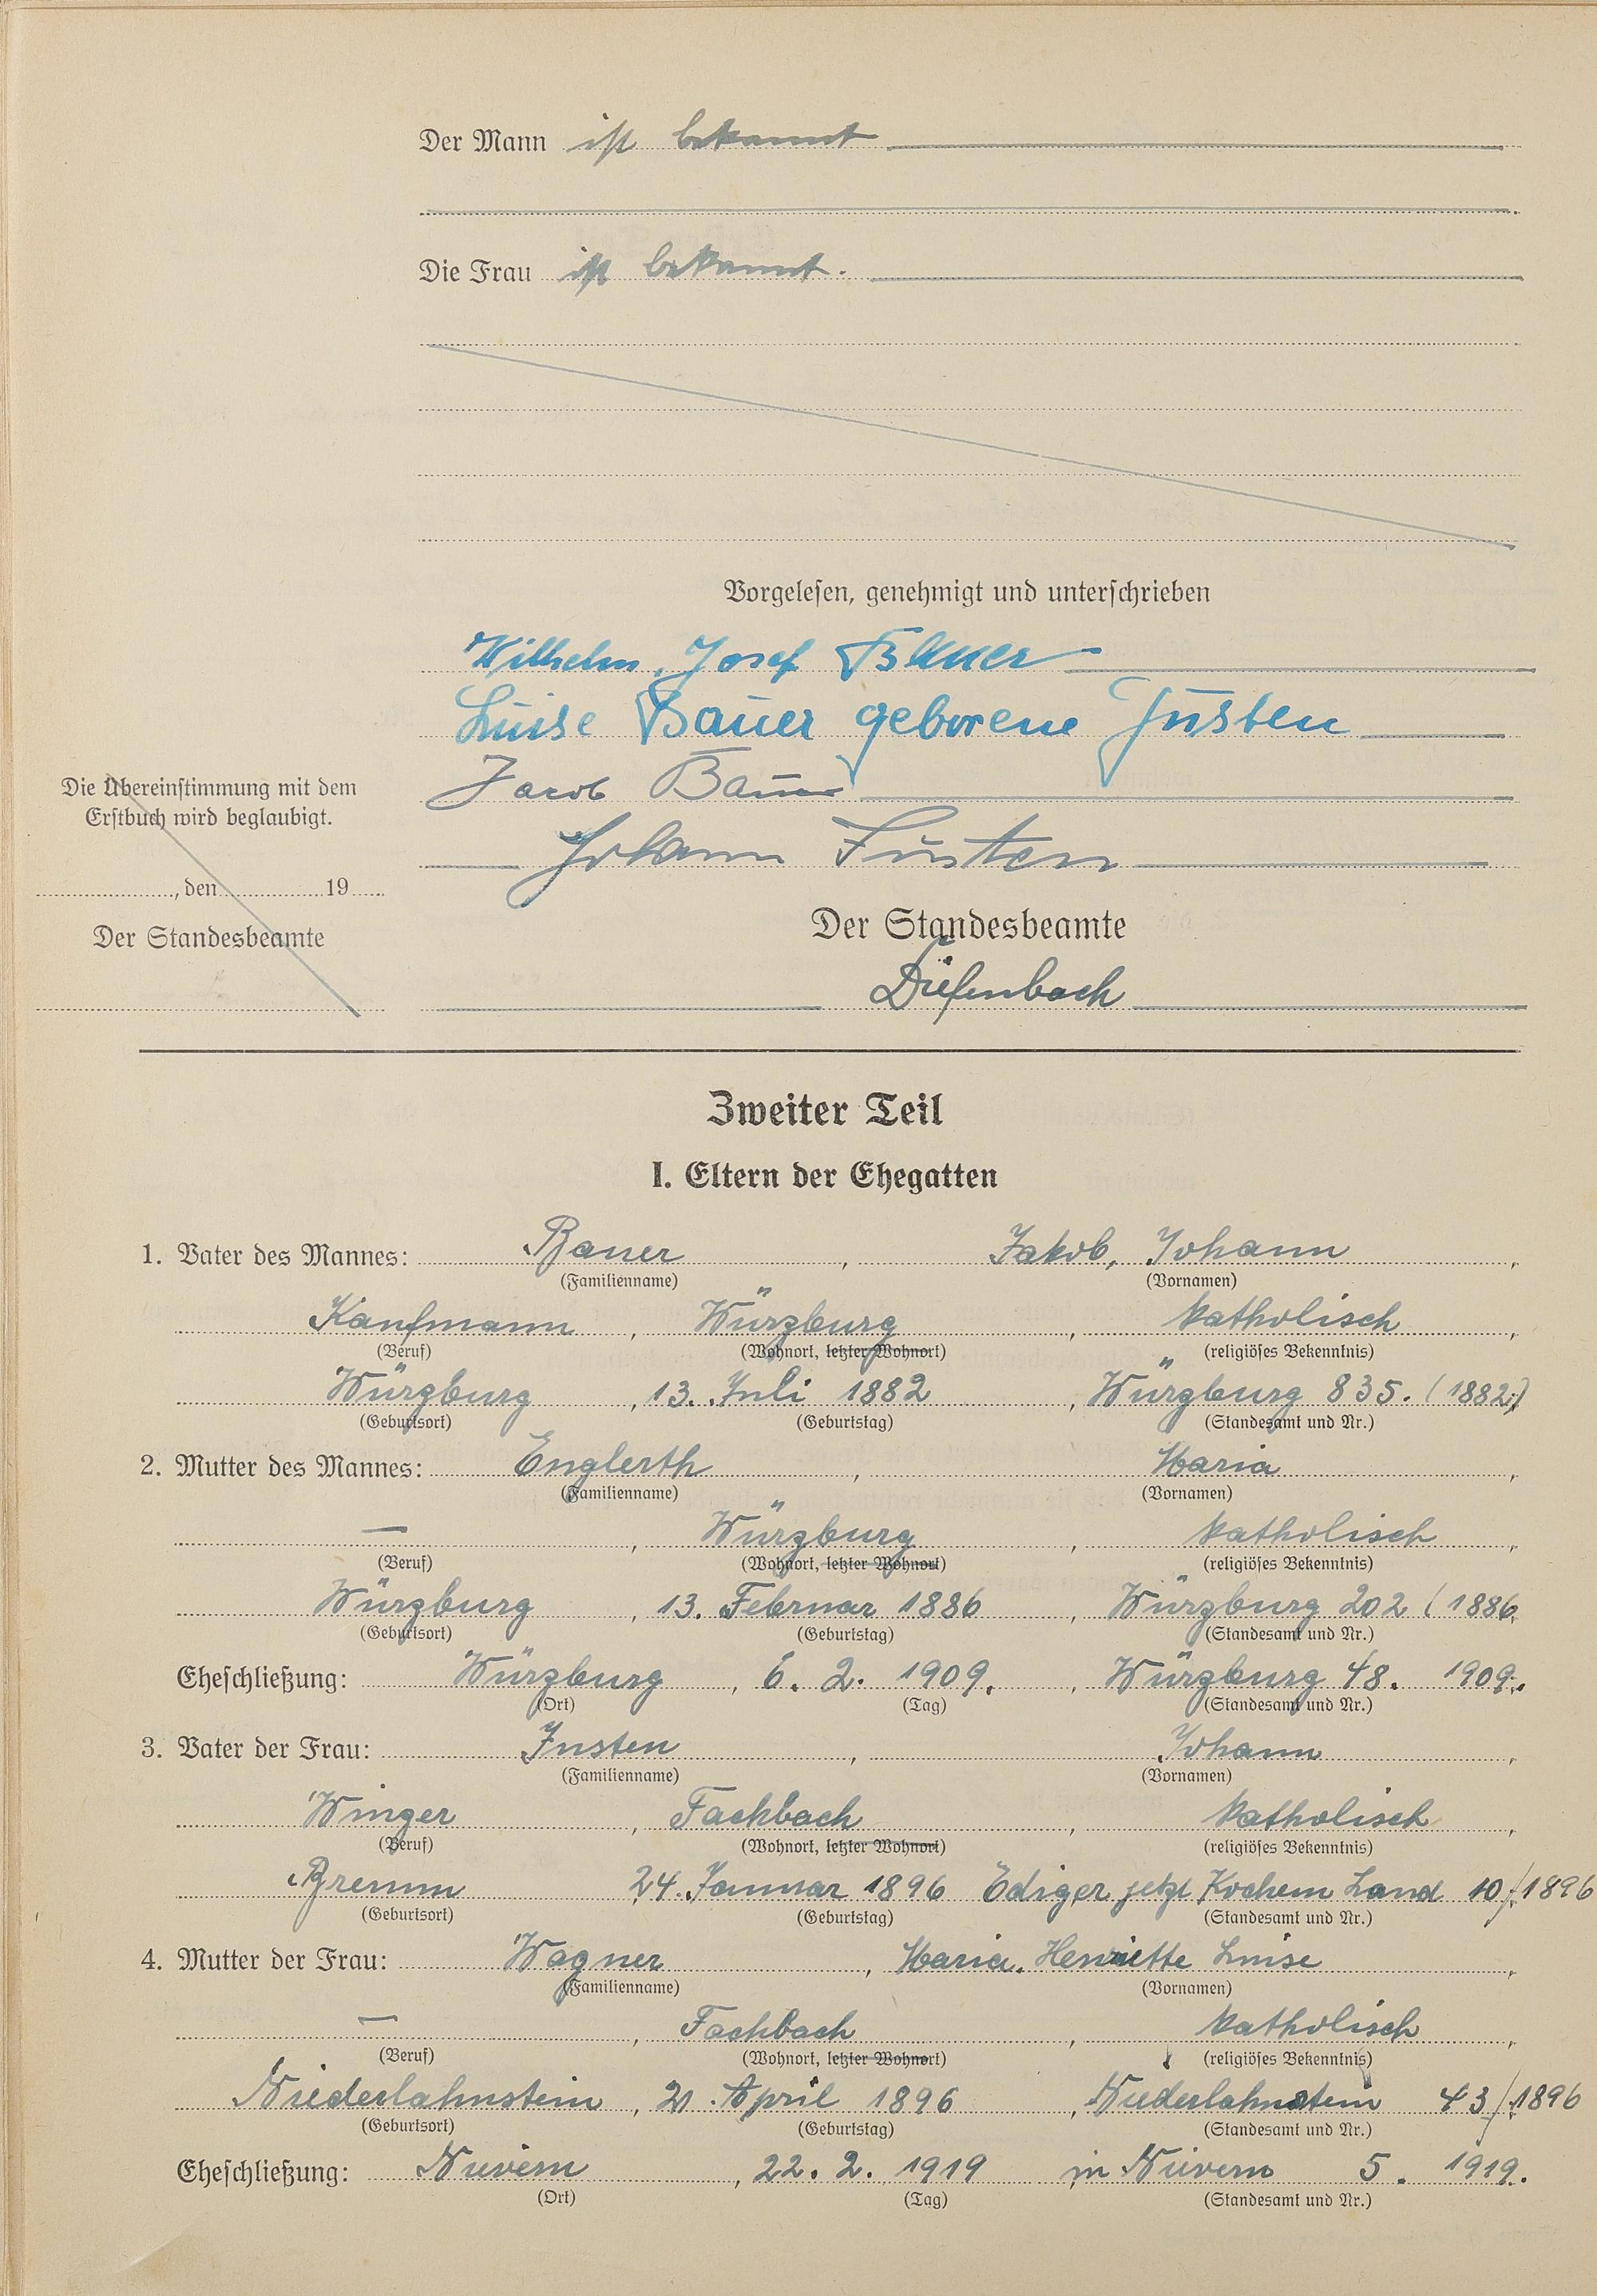 Der Mann ist bekannt
Die Frau ist bekannt.
Vorgelesen, genehmigt und unterschrieben
Wilhelm, Josef Bauer
Luise Bauer geborene Justen
Jacob Bauer
Johann Justen
Die Übereinstimmung mit dem
Erstbuch wird beglaubigt.
, den 19
Der Standesbeamte
Der Standesbeamte
Diefenbach
Zweiter Teil
I. Eltern der Ehegatten
1. Vater des Mannes: Bauer, Jakob, Johann,
(Familienname) (Vornamen)
Kaufmann, Würzburg, katholisch,
(Beruf) (Wohnort, letzter Wohnort) (religiöses Bekenntnis)
Würzburg, 13. Juli 1882, Würzburg 835. (1882)
(Geburtsort) (Geburtstag) (Standesamt und Nr.)
2. Mutter des Mannes: Englerth, Maria,
(Familienname) (Vornamen)
—, Würzburg, katholisch,
(Beruf) (Wohnort, letzter Wohnort) (religiöses Bekenntnis)
Würzburg, 13. Februar 1886, Würzburg 202 (1886
(Geburtsort) (Geburtstag) (Standesamt und Nr.)
Eheschließung: Würzburg, 6. 2. 1909., Würzburg 48. 1909.
(Ort) (Tag) (Standesamt und Nr.)
3. Vater der Frau: Justen, Johann,
(Familienname) (Vornamen)
Winzer, Fachbach, katholisch,
(Beruf) (Wohnort, letzter Wohnort) (religiöses Bekenntnis)
Bremm 24. Januar 1896 Ediger jetzt Kochem Land 10/1896
(Geburtsort) (Geburtstag) (Standesamt und Nr.)
4. Mutter der Frau: Wagner, Maria, Henriette Luise,
(Familienname) (Vornamen)
—, Fachbach, katholisch,
(Beruf) (Wohnort, letzter Wohnort) (religiöses Bekenntnis)
Niederlahnstein, April 1896, Niederlahnstein 43/1896
(Geburtsort) (Geburtstag) (Standesamt und Nr.)
Eheschließung: Nievern, 22. 2. 1919, in Nievern 5. 1919.
(Ort) (Tag) (Standesamt und Nr.)